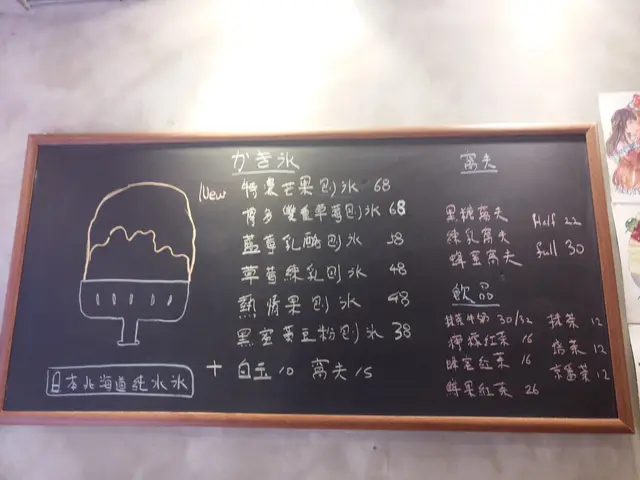 かき氷
New 特濃芒果刨氷 68
博多雙重草莓刨氷 68
藍莓乳酪刨氷 58
草莓練乳刨氷 48
熱情果刨氷 48
黑蜜黃豆粉刨氷 38
+ 白玉 10 窩夫 15
日本北海道純水氷
窩夫
黑糖窩夫 Half 22
練乳窩夫
蜂蜜窩夫 full 30
飲品
抹茶牛奶 30/32
檸檬紅茶 16
蜂蜜紅茶 16
鮮果紅茶 26
抹茶 12
焙茶 12
京番茶 12